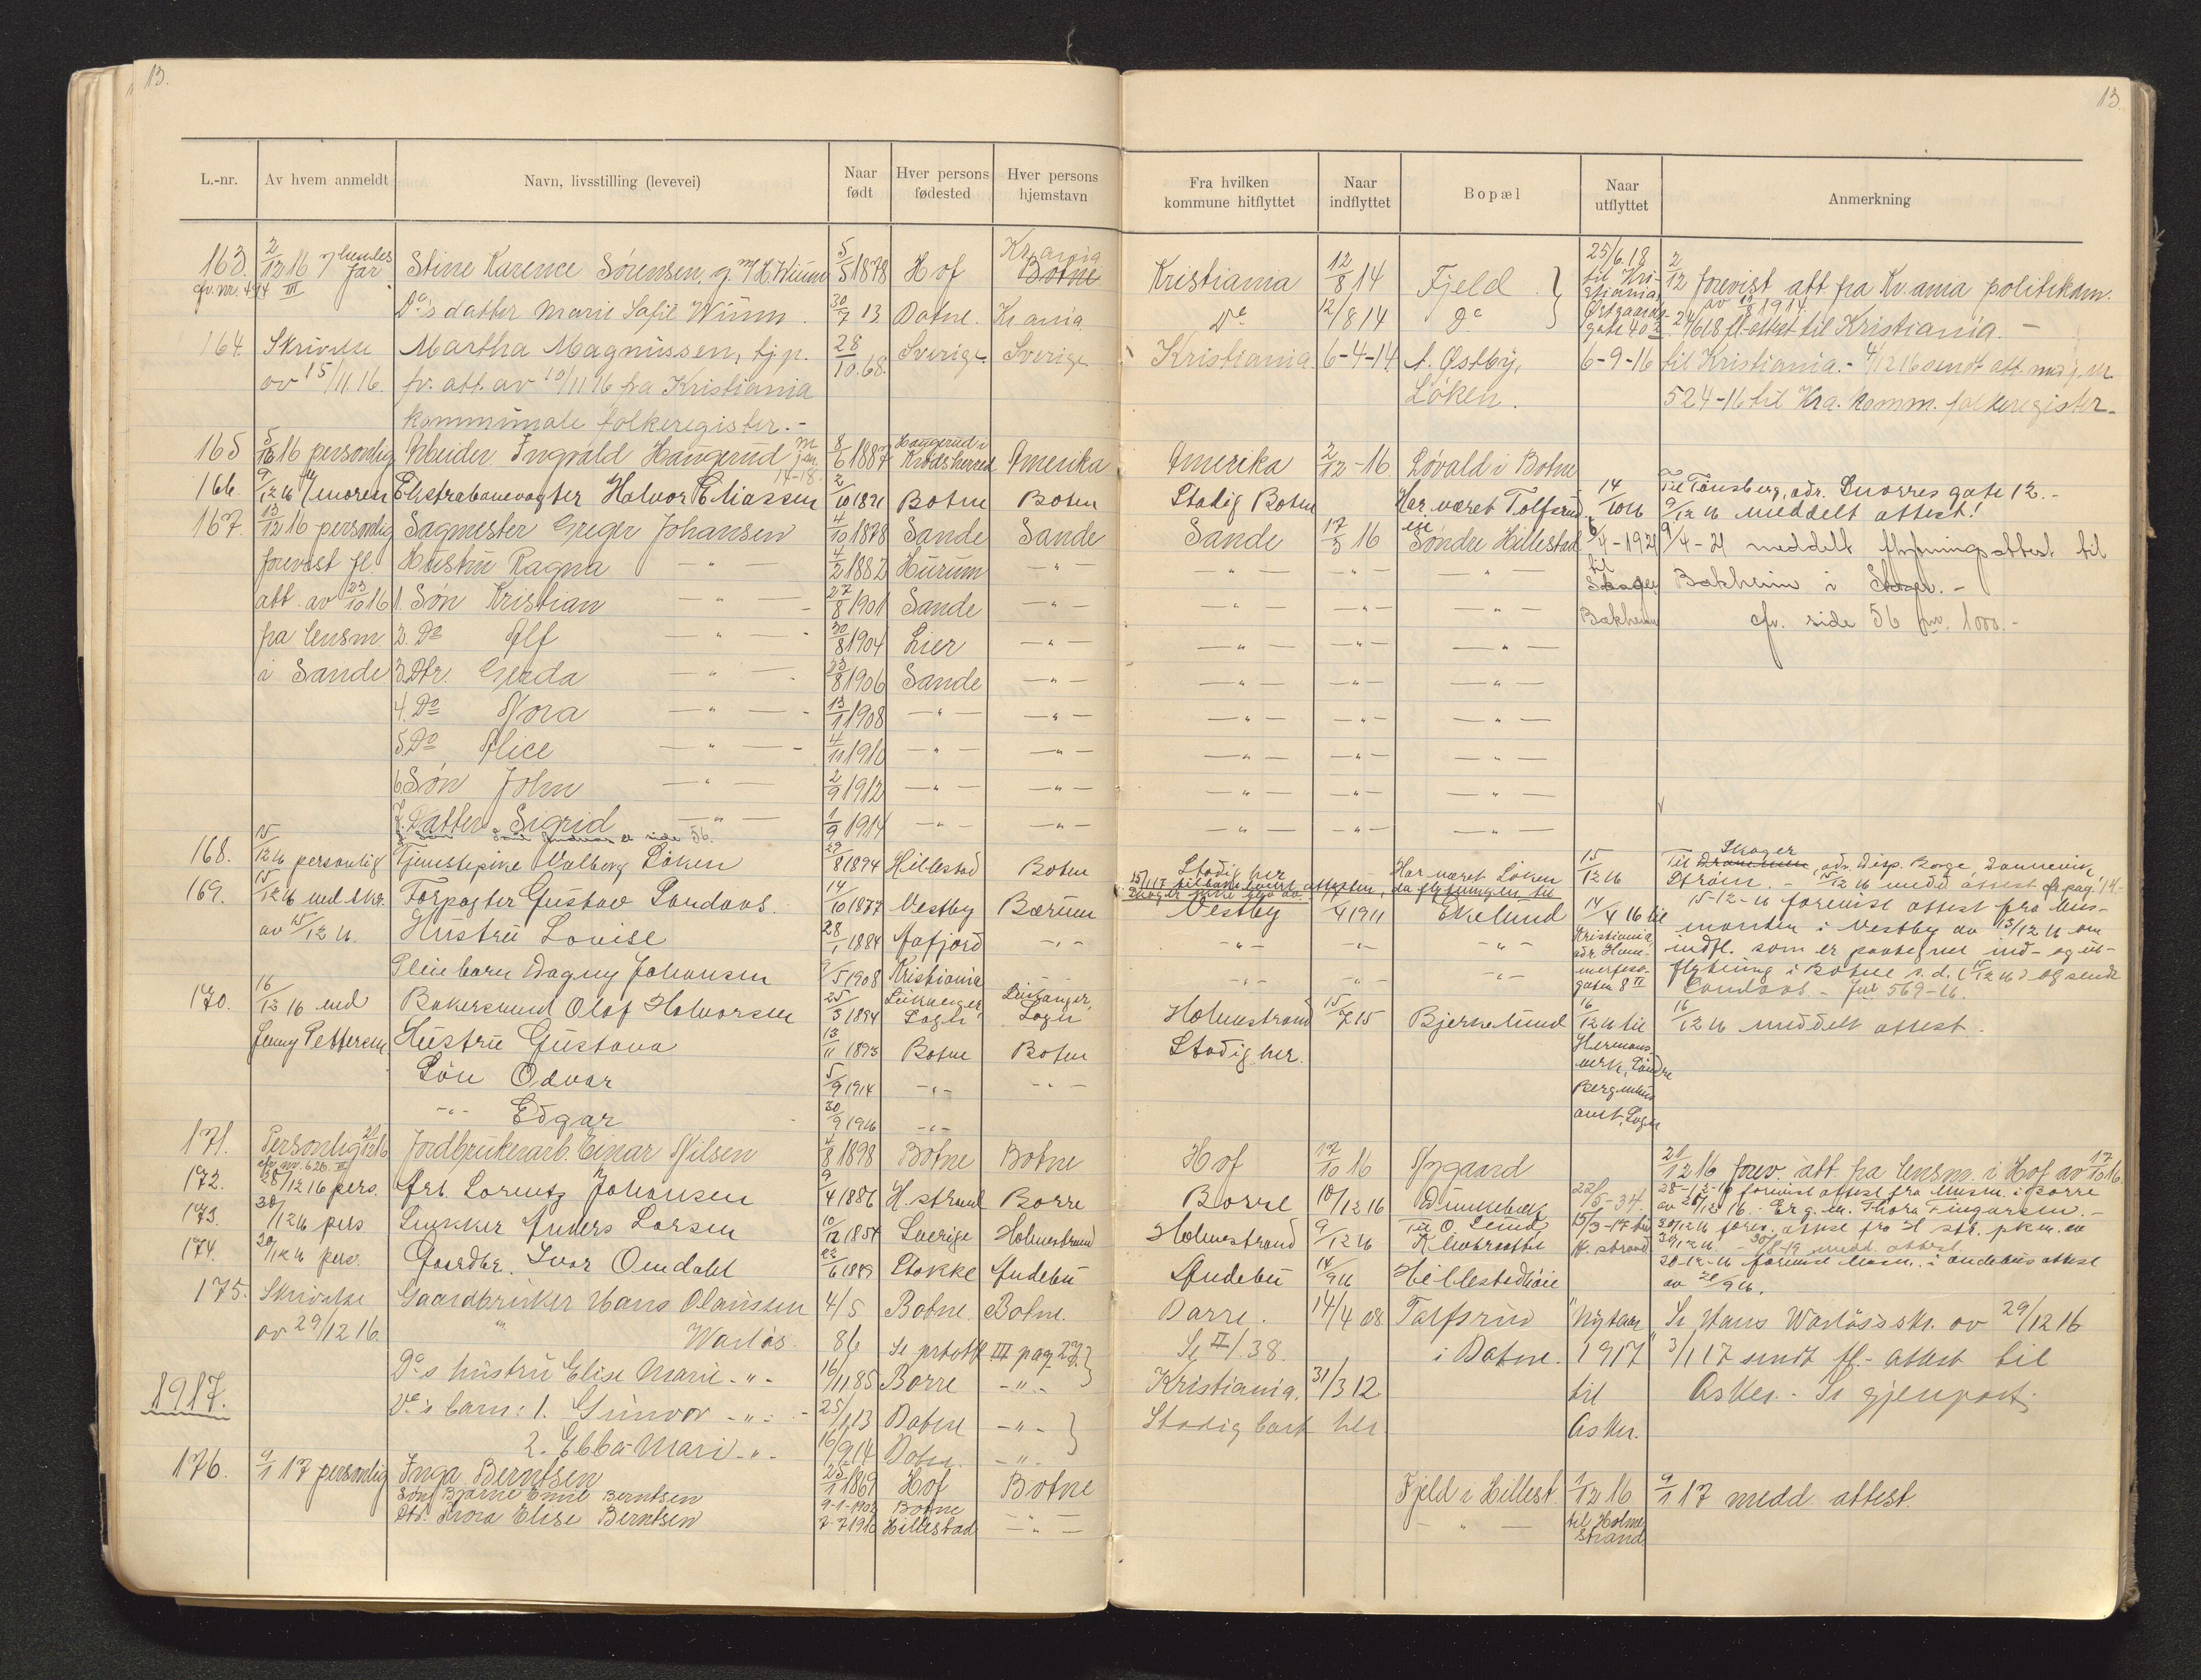 13.
13.
L.-nr. Av hvem anmeldt Navn, livsstilling (levevei) Naar født Hver persons fødested Hver persons hjemstavn Fra hvilken kommune hitflyttet Naar indflyttet Bopæl Naar utflyttet Anmerkning
163. 2/12 16 hendes far Stine Karence Sørensen, g. m/ 5/5 1878 Hof Kr.ania Botne Kristiania 12/8 14 Fjeld 25/6.18 til Kristiania 2/12 forevist att fra Kr.ania politikam.
cfr. nr. 494 III
Do's datter Marie Sofie 30/7 13 Botne. Kr.ania Do 12/8 14 Do gate 40 24/6 18 fl-attest til Kristiania. -
164. Skrivelse Martha Magnussen, tj.p. 28/10.68. Sverige. Sverige. Kristiania 6-4-14 Østby, 6-9-16 til Kristiania. - 4/12 16 sendt att.
av 15/11 16. fr. att. av 10/11 16 fra Kristiania Løken. 524-16 til Kra. komm. folkeregister.
kommunale folkeregister. -
165 5/12 16 personlig Arbeider Ingvald Haugerud 8/6 1887 Haugerud i Krødsherred Amerika Amerika 2/12-16 Løvald i Botne
166. 9/12 16 moren Ekstrabanevogter Halvor Eliassen 2/10 1821 Botne Botne Stadig Botne Har været Tolfsrud 14/10 16 Til Tønsberg, adr. Snorres gate 12. -
9/12 16 meddelt attest!
167. 13/12 16 personlig Sagmester Greger Johansen 4/10 1878 Sande Sande Sande 17/3 16 Søndre Hillestad 6/4-1921 9/4-21 meddelt flytningsattest til
forevist fl. Hustru Ragna — " — 4/2 1882 Hurum — " — — " — — " — — " — til Skoger Bakheim i Skoger. -
att. av 23/10 16 1. Søn Kristian — " — 27/8 1901 Sande — " — — " — — " — — " — Bakheim cfr. side 56 1000. -
fra lensm. 2. Do Alf — " — 30/8 1904 Lier — " — — " — — " — — " —
i Sande 3. Dtr. Gerda — " — 23/8 1906 Sande — " — — " — — " — — " —
4. Do Nora — " — 13/1 1908 — " — — " — — " — — " — — " —
5. Do Alice — " — 4/11 1910 — " — — " — — " — — " — — " —
6. Søn John — " — 2/9 1912 — " — — " — — " — — " — — " —
7. Datter Sigrid — " — 1/9 1914 — " — — " — — " — — " — — " —
side 56.
168. 15/12 16 personlig Tjenestepike Valborg Løken 29/8 1894 Hillestad Botne Stadig her Har været Løken 15/12 16 Til Drammen Skoger, adr. disp. Borge, Dannevik
Strøm. - 15/12 16 medd. attest
169. 15/12 16 ved skr. Forpagter Gustav Sandaas. 14/10 1877 Vestby Bærum Vestby 1911 Ekelund 14/4 16 til 15-12-16 forevist attest fra lens-
av 15/12 16. Hustru Lovise 28/1 1884 Aafjord Kristiania, manden i Vestby av 13/12 16 om
Pleiebarn Dagny Johansen 9/5 1908 Kristiania indfl. som er paategnet ind- og ut-
gaten 8 II flytning i Botne s. d. (15/12 16) og sendt
Sandaas. - Jnr 569-16.
170. 16/12 16 ved Bakersvend Olaf Halvorsen 25/3 1894 Leikanger, Sogn Leikanger, Sogn Holmestrand 15/7 15 Bjerkelund 16/12 16 til 16/12 16 meddelt attest.
Jenny Pettersen Hustru Gustava 13/11 1893 Botne Botne Stadig her. Hermans-
verk, Søndre
Søn Odvar 5/9 1914 - " - - " - Bergenhus
- " - Edgar 30/9 1916 - " - amt, Sogn
171. Personlig 21/12 16 Jordbrukerarb. Einar Nilsen 4/8 1898 Botne Botne Hof 17/10 16 Nygaard 21/12 16 forev. att fra lensm. i Hof av 17/10 16.
172. 28/12 16 pers. Arb. Lorentz Johansen 9/4 1886 H.strand Borre Borre 10/12 16 22/5-34. 28-12-16 forevist attest fra lensm. i Borre
av 28/12 16. - Er g. m. Thora
173. 30/12 16 pers Anders Larsen 10/12 1854 Sverige Holmestrand Holmestrand 9/12 16 H.strand 30/12 16 forev. attest fra H.str. pkm. av
174. 30/12 16 pers. Gaardbr. Ivar Omdahl 22/6 1889 Stokke Andebu Andebu 14/9 16 30-12-16 forevist lensm. i Andebus attest
av 20/9 16.
175. Skrivelse Gaardbruker Hans Olaussen 4/5 Botne Botne. Borre. 14/4 08 Tolfsrud Nytaar Se Hans Warløs's skr. av 29/12 16
av 29/12 16. " Warløs. 86 Se protok III pag 23. Se II/38. i Botne. 1917 3/1 17 sendt fl.-attest til
1917.
Do's hustru Elise Marie - " - 16/11 85 Borre - " - Kristiania. 31/3 12 til Asker. - Se gjenpart.
Do's barn: 1. Gunvor - " - 25/1 13 Botne - " - Stadig her. Asker.
2. Ebba Mari - " - 16/9 14 Botne. - " -
176. 9/1 17 personlig Inga Berntsen 25/1 1869 Hof Botne Fjeld i Hillest. 1/12 16 9/1 17 medd. attest.
Søn Bjarne Emil Berntsen 9-1-1902 Botne
Dtr. Elise Berntsen 7-7-1910 Hillestad — " — — " — til Holme-
strand